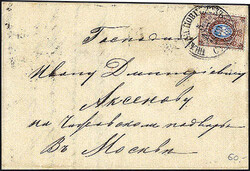 Господину
Ивану Дмитріевичу
Аксенову
на Чижовском подворьи
Въ Москвѣ
60.-